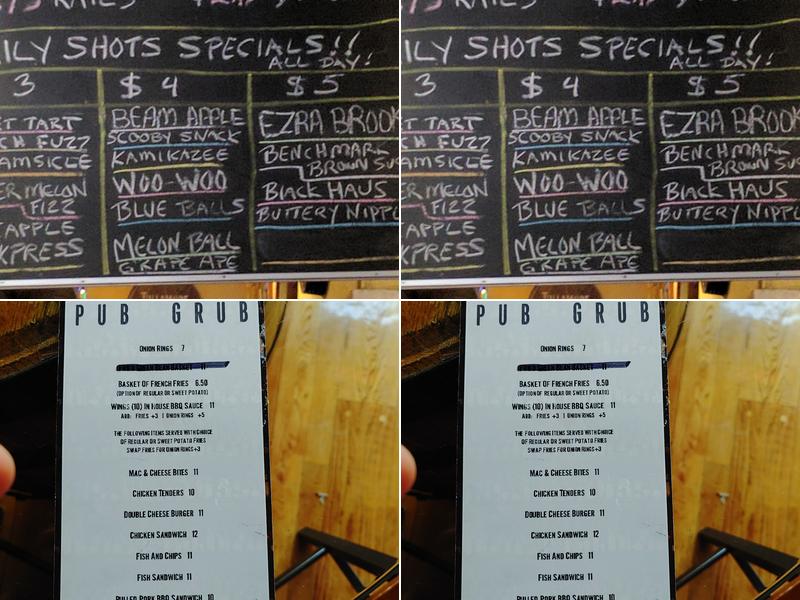 ILY SHOTS SPECIALS!!
ALL DAY!
3 $4 $5
TART
FUZZ
AMSICLE
MELON
FIZZ
APPLE
XPRESS
BEAM APPLE
SCOOBY SNACK
KAMIKAZEE
WOO-WOO
BLUE BALLS
MELON BALL
GRAPE APE
EZRA BROOK
BENCHMARK
BROWN SU
BLACK HAUS
BUTTERY NIPPL
ILY SHOTS SPECIALS!!
ALL DAY!
3 $4 $5
TART
FUZZ
AMSICLE
MELON
FIZZ
APPLE
XPRESS
BEAM APPLE
SCOOBY SNACK
KAMIKAZEE
WOO-WOO
BLUE BALLS
MELON BALL
GRAPE APE
EZRA BROOK
BENCHMARK
BROWN SU
BLACK HAUS
BUTTERY NIPPL
PUB GRUB
ONION RINGS 7
BASKET OF FRENCH FRIES 6.50
(OPTION OF REGULAR OR SWEET POTATO)
WINGS (10) IN HOUSE BBQ SAUCE 11
ADD: FRIES +3 | ONION RINGS +5
THE FOLLOWING ITEMS SERVED WITH CHOICE
OF REGULAR OR SWEET POTATO FRIES
SWAP FRIES FOR ONION RINGS +3
MAC & CHEESE BITES 11
CHICKEN TENDERS 10
DOUBLE CHEESE BURGER 11
CHICKEN SANDWICH 12
FISH AND CHIPS 11
FISH SANDWICH 11
PULLED PORK BBQ SANDWICH 10
PUB GRUB
ONION RINGS 7
BASKET OF FRENCH FRIES 6.50
(OPTION OF REGULAR OR SWEET POTATO)
WINGS (10) IN HOUSE BBQ SAUCE 11
ADD: FRIES +3 | ONION RINGS +5
THE FOLLOWING ITEMS SERVED WITH CHOICE
OF REGULAR OR SWEET POTATO FRIES
SWAP FRIES FOR ONION RINGS +3
MAC & CHEESE BITES 11
CHICKEN TENDERS 10
DOUBLE CHEESE BURGER 11
CHICKEN SANDWICH 12
FISH AND CHIPS 11
FISH SANDWICH 11
PULLED PORK BBQ SANDWICH 10